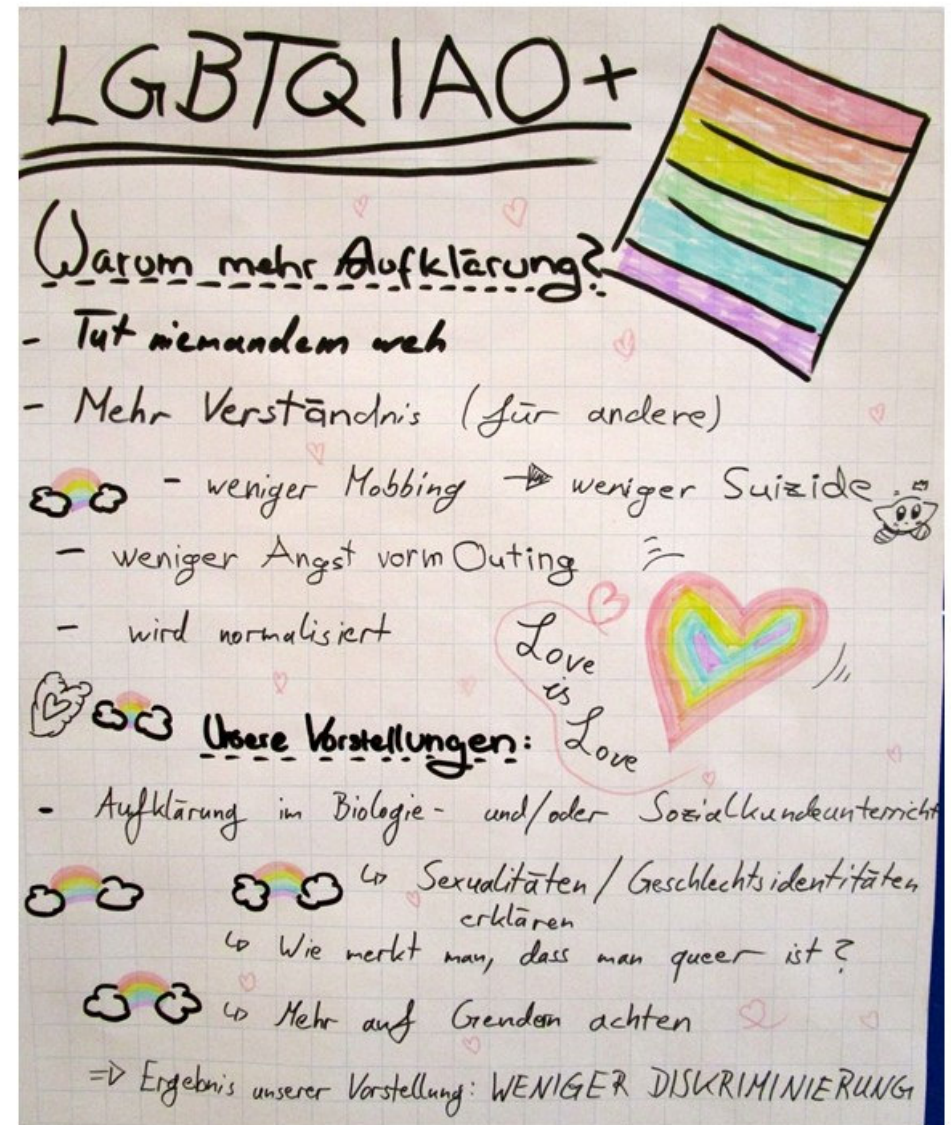 LGBTQIAO+
Warum mehr Aufklärung?
- Tut niemandem weh
- Mehr Verständnis (für andere)
- weniger Mobbing → weniger Suizide
- weniger Angst vorm Outing
- wird normalisiert
Love
is
Love
Unsere Vorstellungen:
- Aufklärung im Biologie- und/oder Sozialkundeunterricht
↳ Sexualitäten / Geschlechtsidentitäten
erklären
↳ Wie merkt man, dass man queer ist?
↳ Mehr auf Gendern achten
⇒ Ergebnis unserer Vorstellung: WENIGER DISKRIMINIERUNG